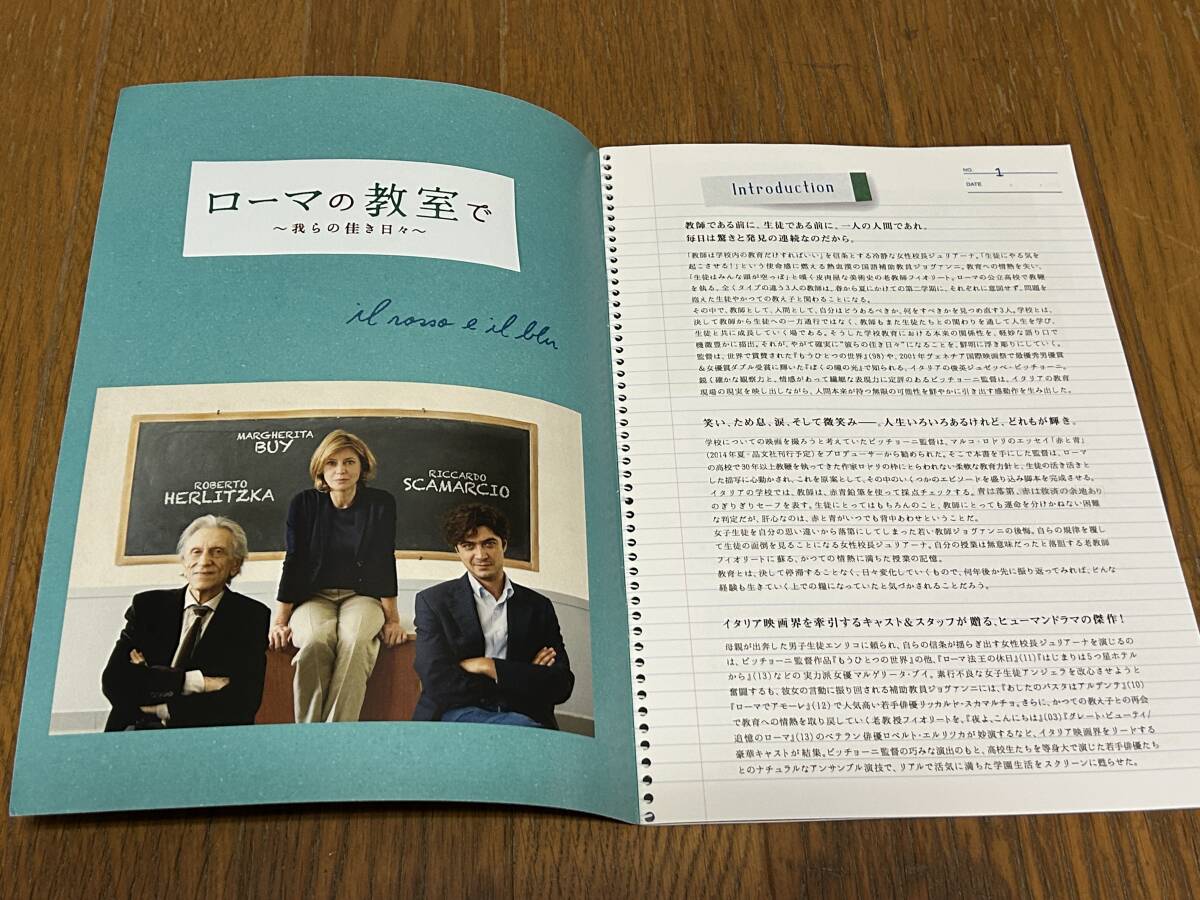 ローマの教室で
～我らの佳き日々～
il rosso e il blu
MARGHERITA
BUY
ROBERTO
HERLITZKA
RICCARDO
SCAMARCIO
Introduction
NO. 1
DATE
教師である前に、生徒である前に。一人の人間であれ。
毎日は驚きと発見の連続なのだから。
「教師は学校内の教育だけすればいい」を信条とする冷静な女性校長ジュリアーナ。「生徒にやる気を
起こさせる！」という使命感に燃える熱血漢の国語補助教員ジョヴァンニ。教育への情熱を失い、
「生徒はみんな頭が空っぽ」と嘆く皮肉屋な美術史の老教師フィオリート。ローマの公立高校で教鞭
を執る、全くタイプの違う3人の教師は、春から夏にかけての第二学期に、それぞれに意図せず、問題を
抱えた生徒やかつての教え子と関わることになる。
その中で、教師として、人間として、自分はどうあるべきか、何をすべきかを見つめ直す3人。学校とは、
決して教師から生徒への一方通行ではなく、教師もまた生徒たちとの関わりを通して人生を学び、
生徒と共に成長していく場である。そうした学校教育における本来の関係性を、軽妙な語り口で
機微豊かに描出。それが、やがて確実に“彼らの佳き日々”になることを、鮮明に浮き彫りにしていく。
監督は、世界で賞賛された『もうひとつの世界』(98)や、2001年ヴェネチア国際映画祭で最優秀男優賞
＆女優賞ダブル受賞に輝いた『ぼくの瞳の光』で知られる、イタリアの俊英ジュゼッペ・ピッチョーニ。
鋭く確かな観察力と、情感があって繊細な表現力に定評のあるピッチョーニ監督は、イタリアの教育
現場の現実を映し出しながら、人間本来が持つ無限の可能性を鮮やかに引き出す感動作を生み出した。
笑い、ため息、涙、そして微笑み――。人生いろいろあるけれど、どれもが輝き。
学校についての映画を撮ろうと考えていたピッチョーニ監督は、マルコ・ロドリのエッセイ「赤と青」
(2014年夏・晶文社刊行予定)をプロデューサーから勧められた。そこで本書を手にした監督は、ローマ
の高校で30年以上教鞭を執ってきた作家ロドリの枠にとらわれない柔軟な教育方針と、生徒の活き活きと
した描写に心動かされ、これを原案として、その中のいくつかのエピソードを盛り込み脚本を完成させる。
イタリアの学校では、教師は、赤青鉛筆を使って採点チェックする。青は落第、赤は救済の余地あり
のぎりぎりセーフを表す。生徒にとってはもちろんのこと、教師にとっても運命を分けかねない困難
な判定だが、肝心なのは、赤と青がいつでも背中あわせということだ。
女子生徒を自分の思い違いから落第にしてしまった若い教師ジョヴァンニの後悔。自らの規律を覆し
て生徒の面倒を見ることになる女性校長ジュリアーナ。自分の授業は無意味だったと落胆する老教師
フィオリートに蘇る、かつての情熱に満ちた授業の記憶。
教育とは、決して停滞することなく、日々変化していくもので、何年後か先に振り返ってみれば、どんな
経験も生きていく上での糧になっていたと気づかされることだろう。
イタリア映画界を牽引するキャスト＆スタッフが贈る、ヒューマンドラマの傑作！
母親が出奔した男子生徒エンリコに頼られ、自らの信条が揺らぎ出す女性校長ジュリアーナを演じるの
は、ピッチョーニ監督作品『もうひとつの世界』の他、『ローマ法王の休日』(11)『はじまりは5つ星ホテル
から』(13)などの実力派女優マルゲリータ・ブイ。素行不良な女子生徒アンジェラを改心させようと
奮闘するも、彼女の言動に振り回される補助教員ジョヴァンニには、『あしたのパスタはアルデンテ』(10)
『ローマでアモーレ』(12)で人気高い若手俳優リッカルド・スカマルチョ。さらに、かつての教え子との再会
で教育への情熱を取り戻していく老教授フィオリートを、『夜よ、こんにちは』(03)『グレート・ビューティ/
追憶のローマ』(13)のベテラン俳優ロベルト・エルリツカが妙演するなど、イタリア映画界をリードする
豪華キャストが結集。ピッチョーニ監督の巧みな演出のもと、高校生たちを等身大で演じた若手俳優たち
とのナチュラルなアンサンブル演技で、リアルで活気に満ちた学園生活をスクリーンに甦らせた。